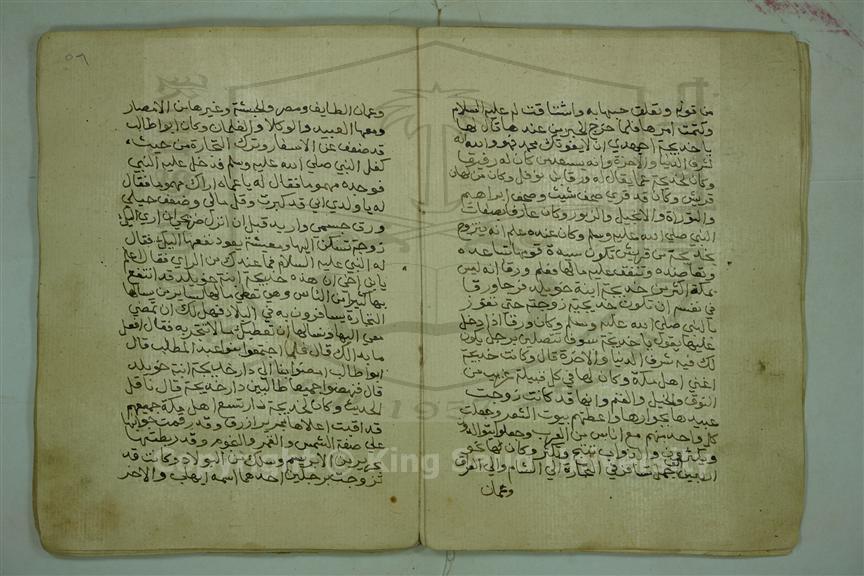 من قوله وتعلق حبها به واشتاقت له عليه السلام
وكتمت امرها فلما خرج الحبر من عندها قال لها
يا خديجة اجهدي ان لا يفوتك محمد فهو والله له
شرف الدنيا والاخرة وانه سيعلن كان له رفيقا
وكان لخديجة عما يقال له ورقة بن نوفل وكان من كهان
قريش وكان قد قرئ صحف شيث وصحف ابراهيم
والتوراة والانجيل والزبور وكان عارفا بصفات
النبي صلى الله عليه وسلم وكان عنده علم انه يتزوج
بخديجة من قريش تكون سيدة قومها تساعده
وتعاضده وتنفق عليه مالها فعلم ورقا انه ليس
بمكة اكثر من خديجة ابنة خويلد فرجا ورقا
في نفسه ان تكون خديجة زوجته حتى تفوز
بالنبي صلى الله عليه وسلم وكان ورقا اذا دخل
عليها يقول يا خديجة سوف تتصلين برجل يكون
لك فيه شرف الدنيا والاخرة قال وكانت خديجة
اغنى اهل مكة وكان لها في كل قبيلة
النوق والخيل والغنم وانها قد كانت زوجت
عبيدها بجوارها واعطتهم بيوت الشعر وجعلت
كل واحد منهم مع اناس من العرب وجعلوا يتوالدون
ويكثرون والدواب تنتج وتكثر وكان لها نحو
جمل تسافر في التجارة الى الشام والى العراق
وعمان
٥٦
وعمان الطايف ومصر والحبشة وغيرها من الامصار
ومعها العبيد والوكلا والغلمان وكان ابوا طالب
قد ضعف عن الاسفار وترك التجارة من حيث
كفل النبي صلى الله عليه وسلم فدخل عليه النبي
فوجده مهموما فقال له يا عماه اراك مهموما فقال
له يا ولدي اني قد كبرت وقل مالي وضعف حيلي
ورق جسمي واريد قبل ان انزل ضريحي ان ارى اليك
زوجة تسكن اليها ومعيشة يعود نفعها اليك فقال
له النبي عليه السلام فما عندك من الراي فقال اعلم
يا بن اخي ان هذه خديجة ابنة خويلد قد انتفع
بها كثير من الناس وهي تعطي مالها لساير من يسالها
التجارة يسافرون به في البلاد فهل لك ان تمضي
معي اليها ونسالها ان تعطيك مالا تتجر به فقال افعل
ما بدا لك قال فلما اجتمعوا بنوا عبد المطلب قال
ابوا طالب امضوا بنا الى دار خديجة ابنة خويلد
قال فنهضوا جميعا طالبين دار خديجة قال ناقل
الحديث وكان لخديجة دار تسع اهل مكة جميعهم
قد اقبت اعلاها بحرير ازرق وقد رقمت حوايطها
على صفة الشمس والقمر والنجوم وقد ربطتها
بحرير من الابريسم وسلك من البولاد وكانت قد
تزوجت برجلين احدهما اسمه ايهاب والاخر